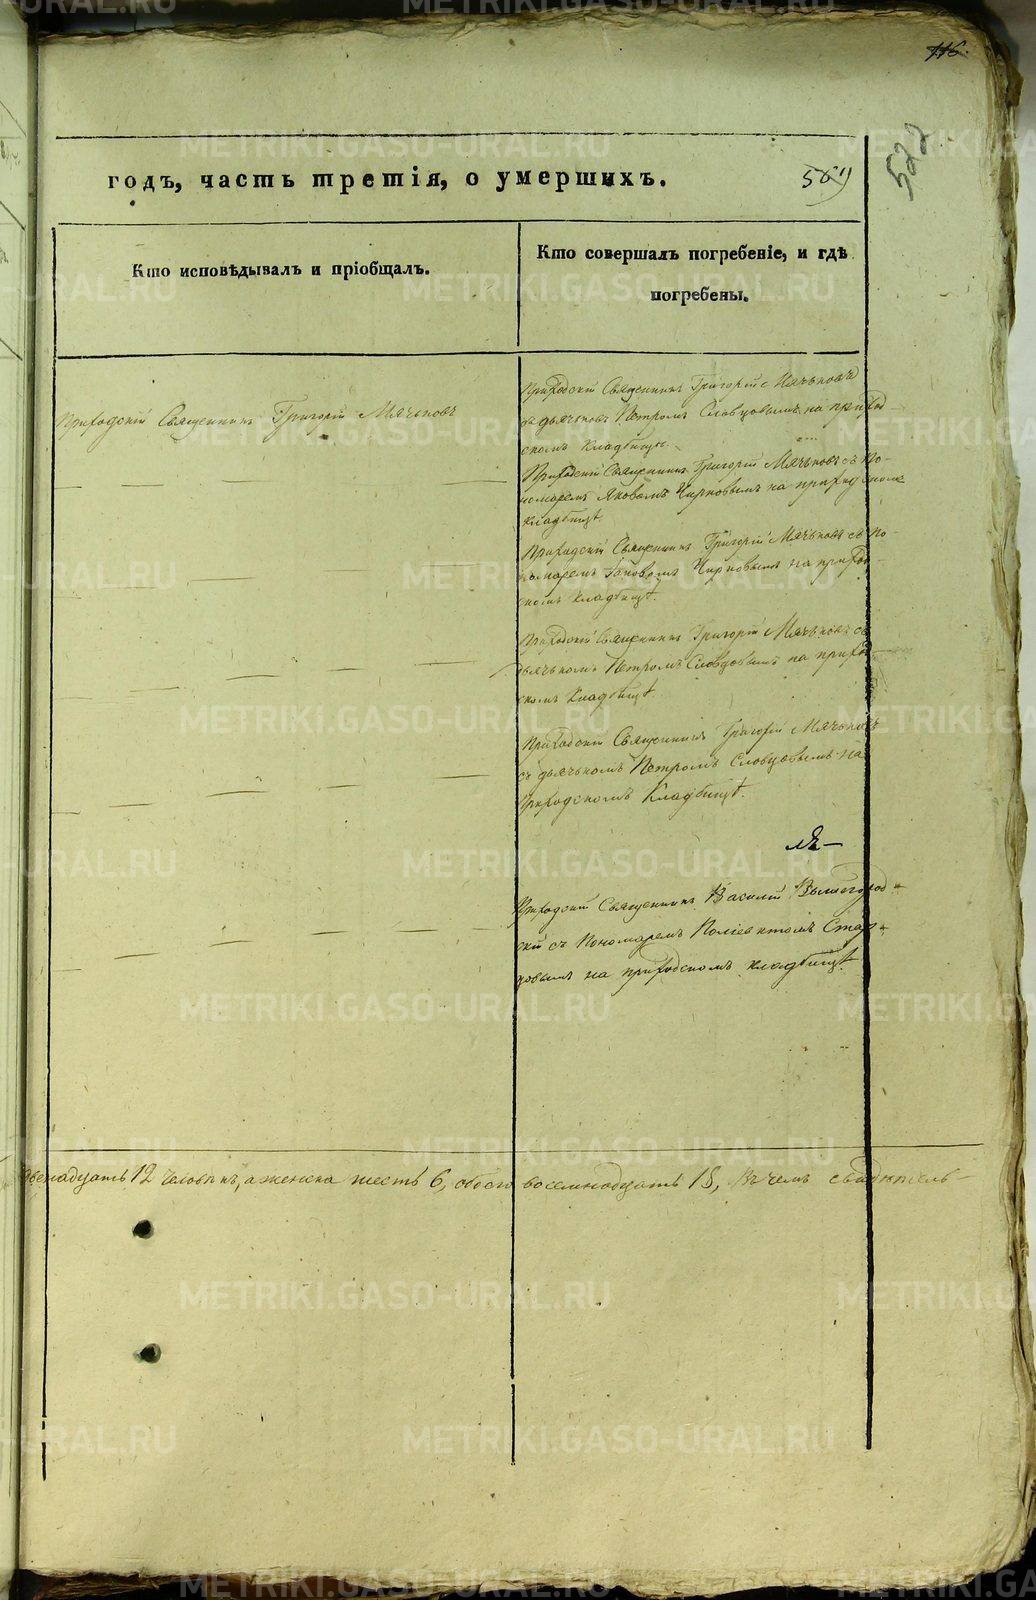 116.
522
годъ, часть третія, о умершихъ.
569
Кто исповѣдывалъ и пріобщалъ.
Кто совершалъ погребеніе, и гдѣ
погребены.
Приходскій Священникъ Григорій Мячьковъ
Приходскій Священникъ Григорій Мячьковъ
съ дьячькомъ Петромъ Словцовымъ на приход-
скомъ кладбищѣ.
Приходскій Священникъ Григорій Мячьковъ съ по-
номаремъ Яковомъ Чирковымъ на приходскомъ
кладбищѣ.
Приходскій Священникъ Григорій Мячьковъ съ по-
номаремъ Яковомъ Чирковымъ на приход-
скомъ кладбищѣ.
Приходскій Священникъ Григорій Мячьковъ съ
дьячькомъ Петромъ Словцовымъ на приход-
скомъ кладбищѣ.
Приходскій Священникъ Григорій Мячьковъ
съ дьячькомъ Петромъ Словцовымъ на
Приходскомъ Кладбищѣ.
Приходскій Священникъ Василій Вышегород-
скій съ Пономаремъ Полиевктомъ Стар-
цовымъ на приходскомъ кладбищѣ.
двенадцать 12 человѣкъ, а женска шесть 6, обоего восемнадцать 18, Въ чемъ свидѣтель-
METRIKI.GASO-URAL.RU